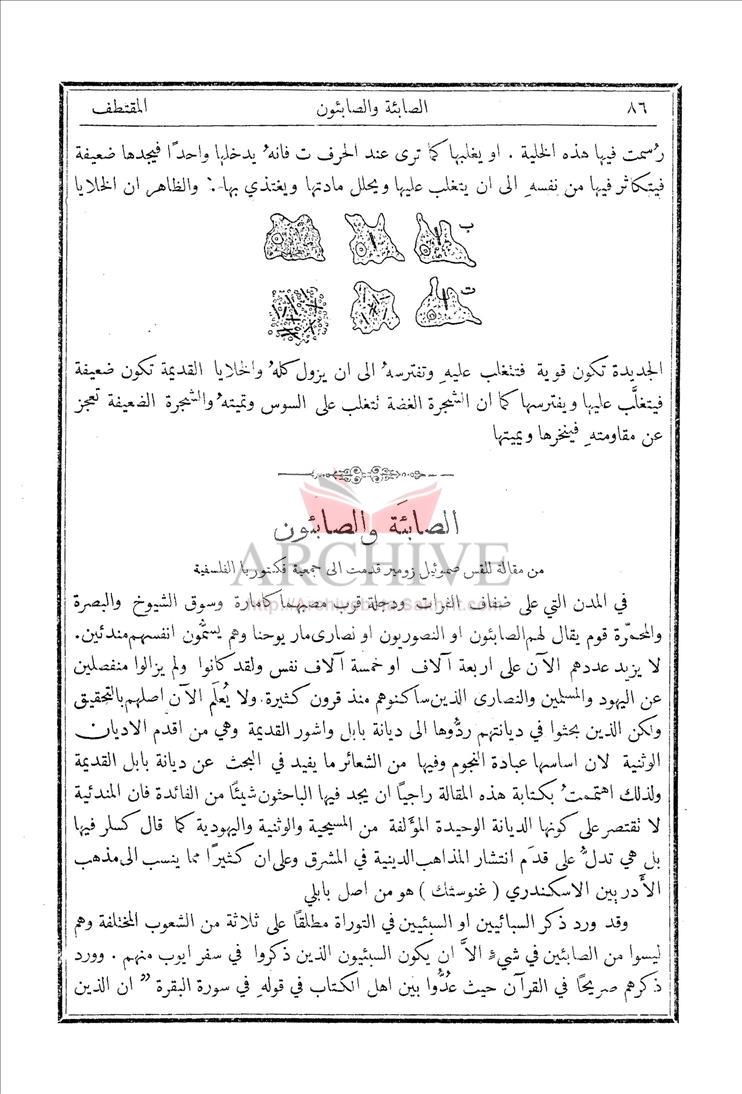 ٨٦ الصابئة والصابئون المقتطف
رُسمت فيها هذه الخلية . او يغلبها كما ترى عند الحرف ت فانهُ يدخلها واحداً فيجدها ضعيفة
فيتكاثر فيها من نفسهِ الى ان يتغلب عليها ويحلل مادتها ويغتذي بها . والظاهر ان الخلايا
ب
ت
الجديدة تكون قوية فتتغلب عليهِ وتفترسهُ الى ان يزول كلهُ والخلايا القديمة تكون ضعيفة
فيتغلَّب عليها ويفترسها كما ان الشجرة الغضة تتغلب على السوس وتميتهُ والشجرة الضعيفة تعجز
عن مقاومتهِ فينخرها ويميتها
الصابئة والصابئون
ARCHIVE
من مقالة للقس صموئيل زويمر قدمت الى جمعية فكتوريا الفلسفية
في المدن التي على ضفاف الفرات ودجلة قرب مصبهما كامارة وسوق الشيوخ والبصرة
http://Archivebeta.Sakhrit.com
والمحمّرة قوم يقال لهم الصابئون او النصوريون او نصارى مار يوحنا وهم يسمُّون انفسهم مندئين.
لا يزيد عددهم الآن على اربعة آلاف او خمسة آلاف نفس ولقد كانوا ولم يزالوا منفصلين
عن اليهود والمسلمين والنصارى الذين ساكنوهم منذ قرون كثيرة. ولا يُعلَم الآن اصلهم بالتحقيق
ولكن الذين بحثوا في ديانتهم ردُّوها الى ديانة بابل واشور القديمة وهي من اقدم الاديان
الوثنية لان اساسها عبادة النجوم وفيها من الشعائر ما يفيد في البحث عن ديانة بابل القديمة
ولذلك اهتممتُ بكتابة هذه المقالة راجياً ان يجد فيها الباحثون شيئاً من الفائدة فان المندئية
لا تقتصر على كونها الديانة الوحيدة المؤَلفة من المسيحية والوثنية واليهودية كما قال كسلر فيها
بل هي تدلُّ على قدَم انتشار المذاهب الدينية في المشرق وعلى ان كثيراً مما ينسب الى مذهب
الأَدريين الاسكندري ( غنوستك ) هو من اصل بابلي
وقد ورد ذكر السبائيين او السبئيين في التوراة مطلقاً على ثلاثة من الشعوب المختلفة وهم
ليسوا من الصابئين في شيءٍ الاَّ ان يكون السبئيون الذين ذكروا في سفر ايوب منهم . وورد
ذكرهم صريحاً في القرآن حيث عُدُّوا بين اهل الكتاب في قولهِ في سورة البقرة " ان الذين